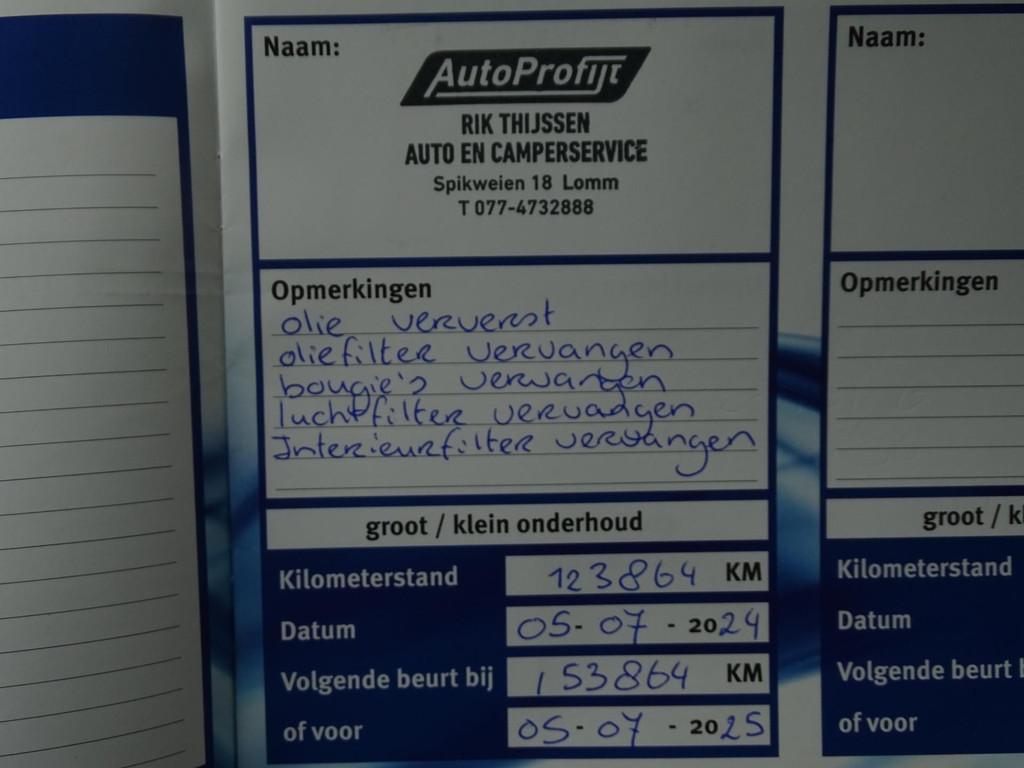 Naam:
AutoProfijt
RIK THIJSSEN
AUTO EN CAMPERSERVICE
Spikweien 18 Lomm
T 077-4732888
Opmerkingen
olie ververst
oliefilter vervangen
bougie's vervangen
luchtfilter vervangen
Interieurfilter vervangen
groot / klein onderhoud
Kilometerstand 123864 KM
Datum 05-07-2024
Volgende beurt bij 153864 KM
of voor 05-07-2025
Naam:
Opmerkingen
groot / kl
Kilometerstand
Datum
Volgende beurt b
of voor